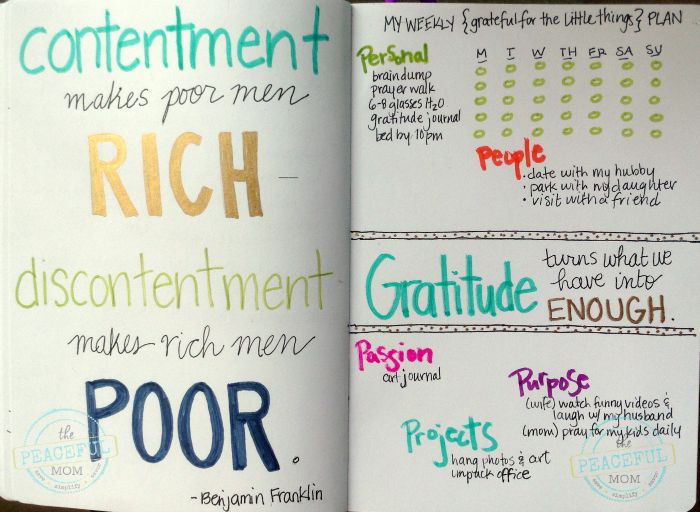 contentment
makes poor men
RICH -
discontentment
makes rich men
POOR.
- Benjamin Franklin
the
PEACEFUL
MOM
simplify
MY WEEKLY {grateful for the little things} PLAN
Personal M T W TH FR SA SU
braindump
prayer walk
6-8 glasses H2O
gratitude journal
bed by 10pm
People
• date with my hubby
• park with my daughter
• visit with a friend
Gratitude turns what we
have into
ENOUGH.
Passion
art journal
Purpose
(wife) watch funny videos &
laugh w/ my husband
(mom) pray for my kids daily
Projects
hang photos & art
unpack office
the
PEACEFUL
MOM
simplify